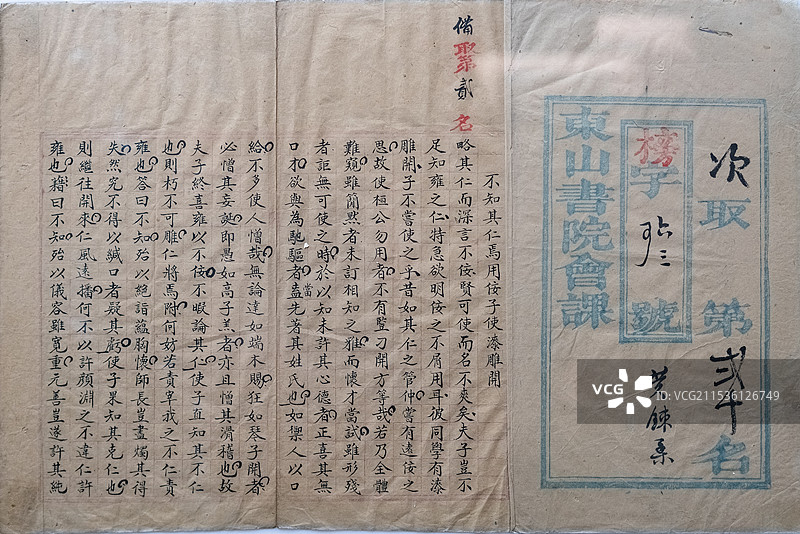 次取第貳十名
榜字號
東山書院會課
備取第貳名
不知其仁焉用佞子使漆雕開
略其仁而深言不佞賢可使而名不爽矣夫子豈不
足知雍之仁特急欲明佞之不屑用耳彼同學有漆
雕開子不嘗使之乎昔如其仁之管仲嘗有遠佞之
思故使桓公勿用者不有豎刀開方等哉若乃全體
難窺雖簡然者未訂相知之雅而懷才當試雖形殘
者詎無可使之時於以知未許其心德者正喜其無
口才欲與為馳驅者當盍先著其姓氏也如禦人以口
給不多使人憎哉無論達如端木賜狂如琴子開者
必憎其妄誕即愚如高子羔者亦且憎其滑稽也故
夫子終喜雍以不佞不暇論其仁使子直知其不仁
也則朽不可雕仁將焉附何妨若責宰我之不仁責
雍也答曰不知殆以絕諧蘊胸懷師長豈盡燭其得
失然究不得以緘口者疑其虧使子果知其克仁也
則繼往開來仁風遠播何不以許顏淵之不違仁許
雍也猶曰不知殆以儀容雖寬重元善豈遂許其純
VCG
VCG211536126749